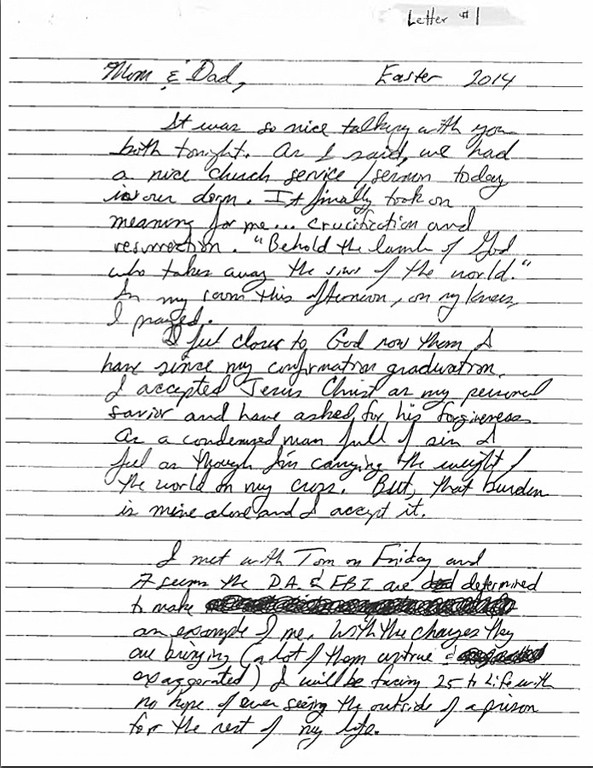 Letter #1
Mom & Dad, Easter 2014
It was so nice talking with you
both tonight. As I said, we had
a nice church service/sermon today
in our dorm. It finally took on
meaning for me... crucification and
resurrection. "Behold the lamb of God
who takes away the sins of the world."
In my room this afternoon, on my knees,
I prayed.
I feel closer to God now than I
have since my confirmation graduation.
I accepted Jesus Christ as my personal
savior and have asked for his forgiveness
As a condemned man full of sin I
feel as though I'm carrying the weight of
the world on my cross. But, that burden
is mine alone and I accept it.
I met with Tom on Friday and
it seems the DA & FBI are determined
to make
an example of me. With the charges they
are bringing (a lot of them untrue &
exaggerated) I will be facing 25 to life with
no hope of ever seeing the outside of a prison
for the rest of my life.